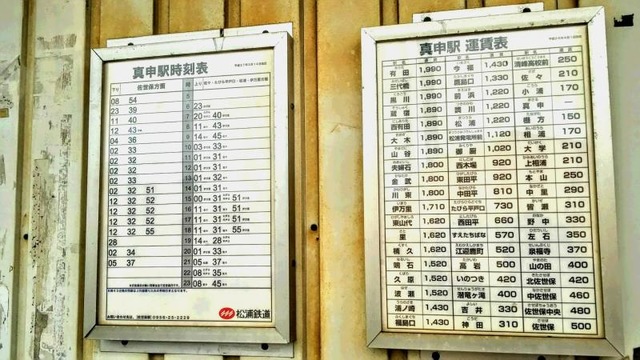 真申駅時刻表
下り 佐世保方面 時
08 54
23 39 23
11 40 7 20 40
12 43 8 11 43
04 36 9 14 45
02 33 10 03 33
02 32 11 01 31
02 32 12 01 31
02 32 13 01 31
12 32 51 14 01 31
12 32 52 15 00 31 51
12 32 52 16 11 31 51
12 32 52 17 11 31 51
12 32 55 18 11 31 55
28 19 11 28
02 34 20 01 34
05 37 21 05 37
22 08 35
23 08 45
松浦鉄道
真申駅 運賃表
有田 1,990 今福 1,430 清峰高校前 250
三代橋 1,990 鷹島口 1,330 佐々 210
黒川 1,990 前浜 1,220 小浦 170
蔵宿 1,990 調川 1,220 真申
西有田 1,890 松浦 1,220 棚方 150
大木 1,890 松浦発電所前 1,120 相浦 170
山谷 1,890 御厨 1,020 大学 210
夫婦石 1,800 西木場 920 上相浦 210
金武 1,800 東田平 920 本山 250
川東 1,800 中田平 810 中里 290
伊万里 1,710 たびら平戸口 730 皆瀬 310
東山代 1,620 西田平 660 野中 330
里 1,620 すえたちばな 570 左石 350
楠久 1,620 江迎鹿町 520 泉福寺 370
鳴石 1,520 高岩 500 山の田 400
久原 1,520 いのつき 420 北佐世保 420
波瀬 1,520 潜竜ヶ滝 400 中佐世保 460
浦ノ崎 1,430 吉井 330 佐世保中央 480
福島口 1,430 神田 310 佐世保 500